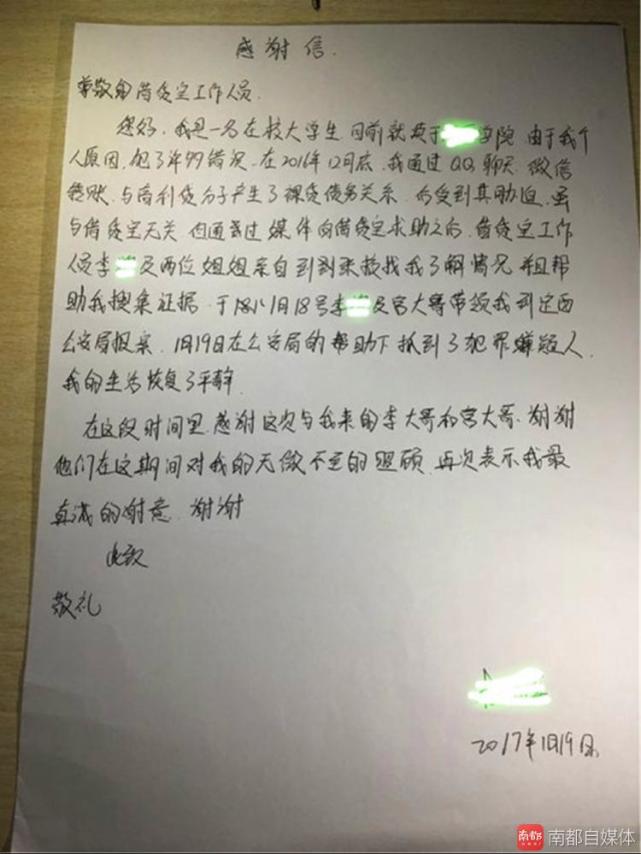 感谢信.
尊敬的借贷宝工作人员.
您好,我是一名在校大学生,目前就读于 学院 由于我个
人原因, 了 情况. 在2016年12月底,我通过QQ聊天 微信
转账,与高利贷分子产生了裸贷债务关系 后受到其胁迫, 虽
与借贷宝无关 但通过 媒体向借贷宝求助之后, 借贷宝工作
人员李 及两位姐姐亲自到 找我了解情况并且帮
助我搜集证据. 于 1月18号李 及宫大哥带领我到定西
公安局报案. 1月19日在公安局的帮助下抓到了犯罪嫌疑人.
我的生活恢复了平静.
在这段时间里,感谢这次与我来的李大哥和宫大哥,谢谢
他们在这期间对我的无微不至的照顾,再次表示我最
真诚的谢意. 谢谢
此致
敬礼
2017年1月19日
南都 南都自媒体